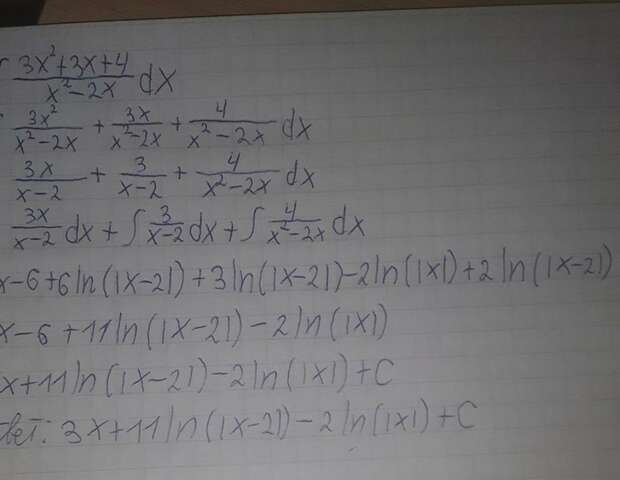 ∫ (3x²+3x+4)/(x²-2x) dx
∫ 3x²/(x²-2x) + 3x/(x²-2x) + 4/(x²-2x) dx
3x/(x-2) + 3/(x-2) + 4/(x²-2x) dx
3x/(x-2) dx + ∫ 3/(x-2) dx + ∫ 4/(x²-2x) dx
x-6+6ln(|x-2|)+3ln(|x-2|)-2ln(|x|)+2ln(|x-2|)
x-6+11ln(|x-2|)-2ln(|x|)
x+11ln(|x-2|)-2ln(|x|)+C
твет: 3x+11ln(|x-2|)-2ln(|x|)+C